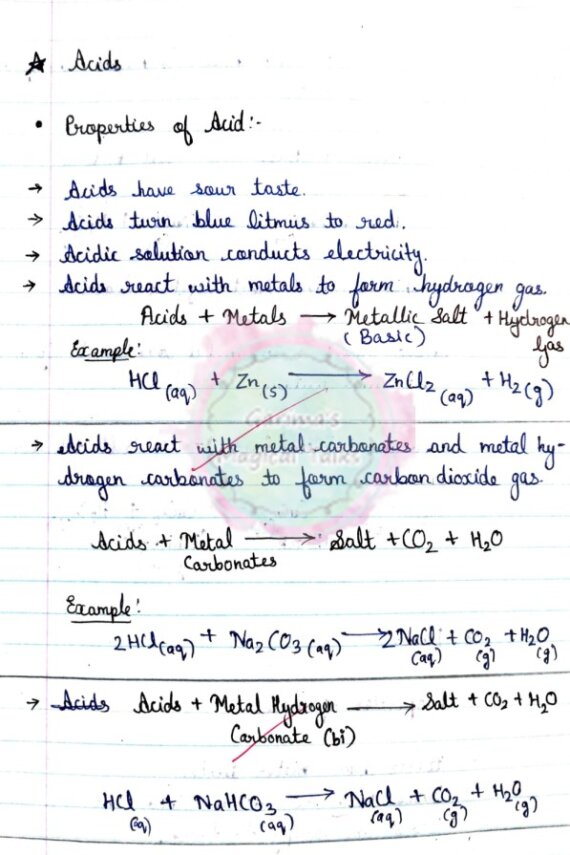 ★ Acids
• Properties of Acid:-
→ Acids have sour taste.
→ Acids turn blue litmus to red.
→ Acidic solution conducts electricity.
→ Acids react with metals to form hydrogen gas.
Acids + Metals → Metallic Salt + Hydrogen
(Basic) Gas
Example:
HCl (aq) + Zn (s) → ZnCl2 (aq) + H2 (g)
Garima's
Magical
→ Acids react with metal carbonates and metal hy-
drogen carbonates to form carbon dioxide gas.
Acids + Metal → Salt + CO2 + H2O
Carbonates
Example:
2HCl (aq) + Na2CO3 (aq) → 2NaCl (aq) + CO2 (g) + H2O (g)
→ Acids Acids + Metal Hydrogen → Salt + CO2 + H2O
Carbonate (bi)
HCl (aq) + NaHCO3 (aq) → NaCl (aq) + CO2 (g) + H2O (g)